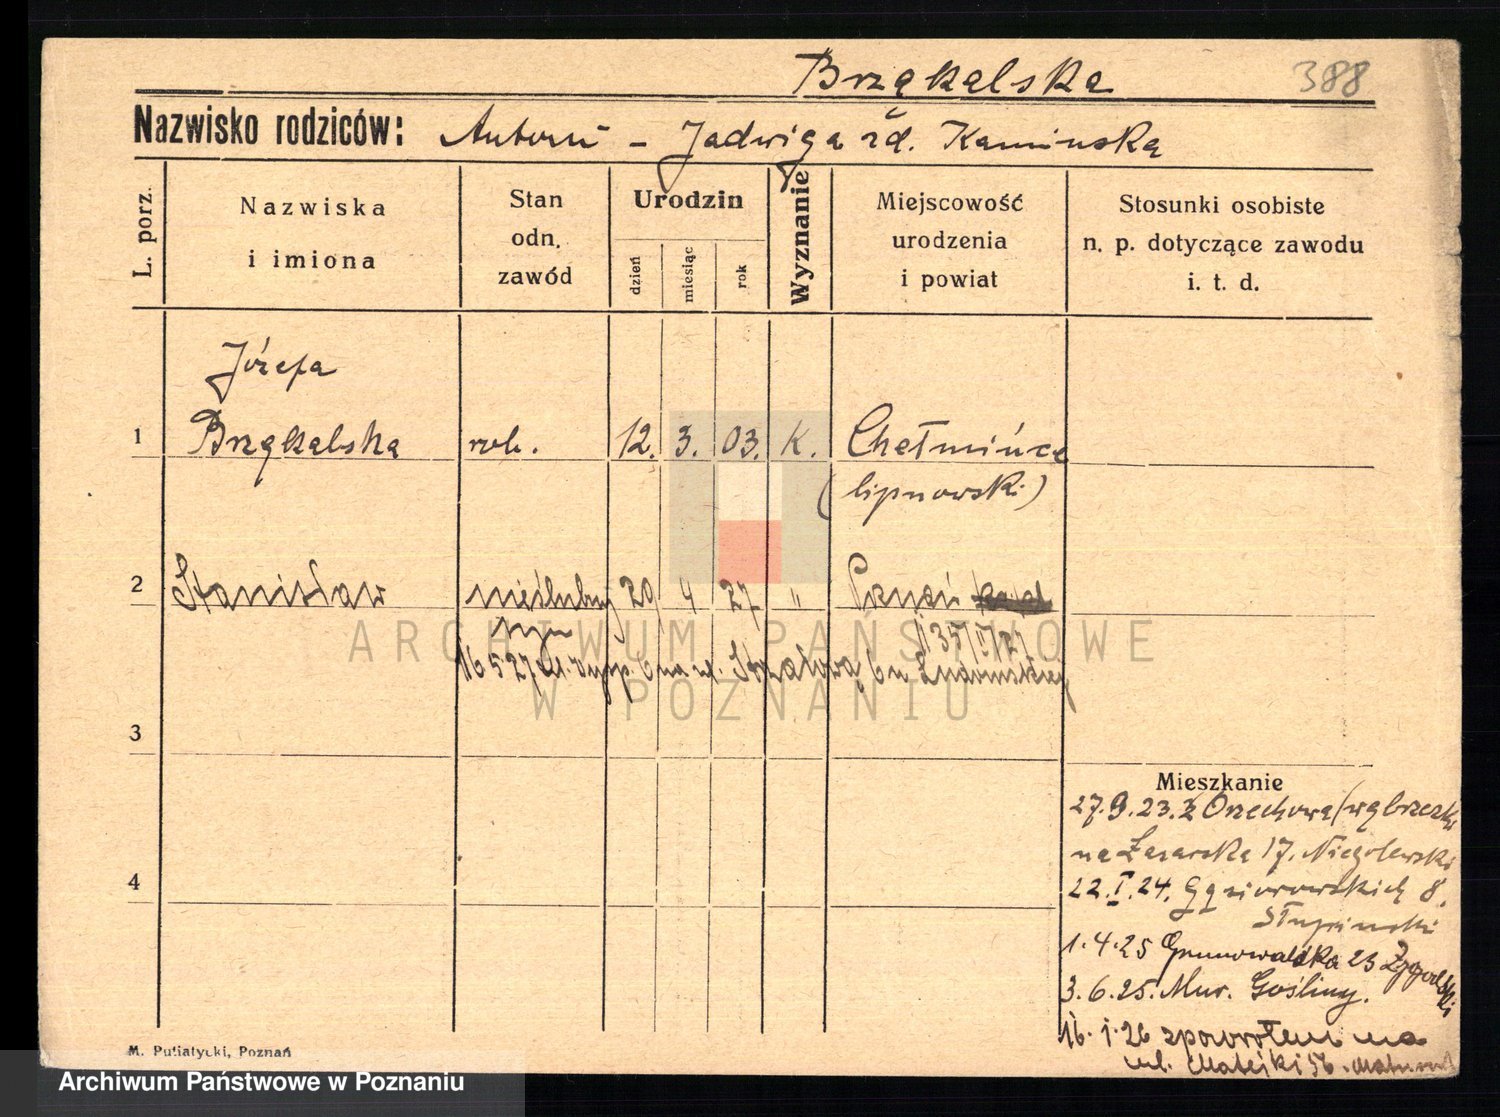 Brząkalska 388
Nazwisko rodziców: Antoni - Jadwiga zd. Kamińska
L. porz.
Nazwiska
i imiona
Stan
odn.
zawód
Urodzin
dzień
miesiąc
rok
Wyznanie
Miejscowość
urodzenia
i powiat
Stosunki osobiste
n. p. dotyczące zawodu
i. t. d.
Józefa
1 Brząkalska rob. 12. 3. 03. K. Chełmińce
(lipnowski)
2 Stanisław nieślubny 29 4 27 " Poznań
syn
ARCHIWUM PAŃSTWOWE
W POZNANIU
16 5 27 na ul. Strzałową 6
3
Mieszkanie
27.9.23. z Orzechowa (Wąbrzeźno
na Łazarska 17. Niegolewski
4
22.I.24. Gąsiorowskich 8.
Słupinski
1.4.25 Grunwaldka 23
3.6.25. Mur. Gośliny.
16.1.26 zpowrotem na
ul. Matejki 56.
M. Putiatycki, Poznań
Archiwum Państwowe w Poznaniu